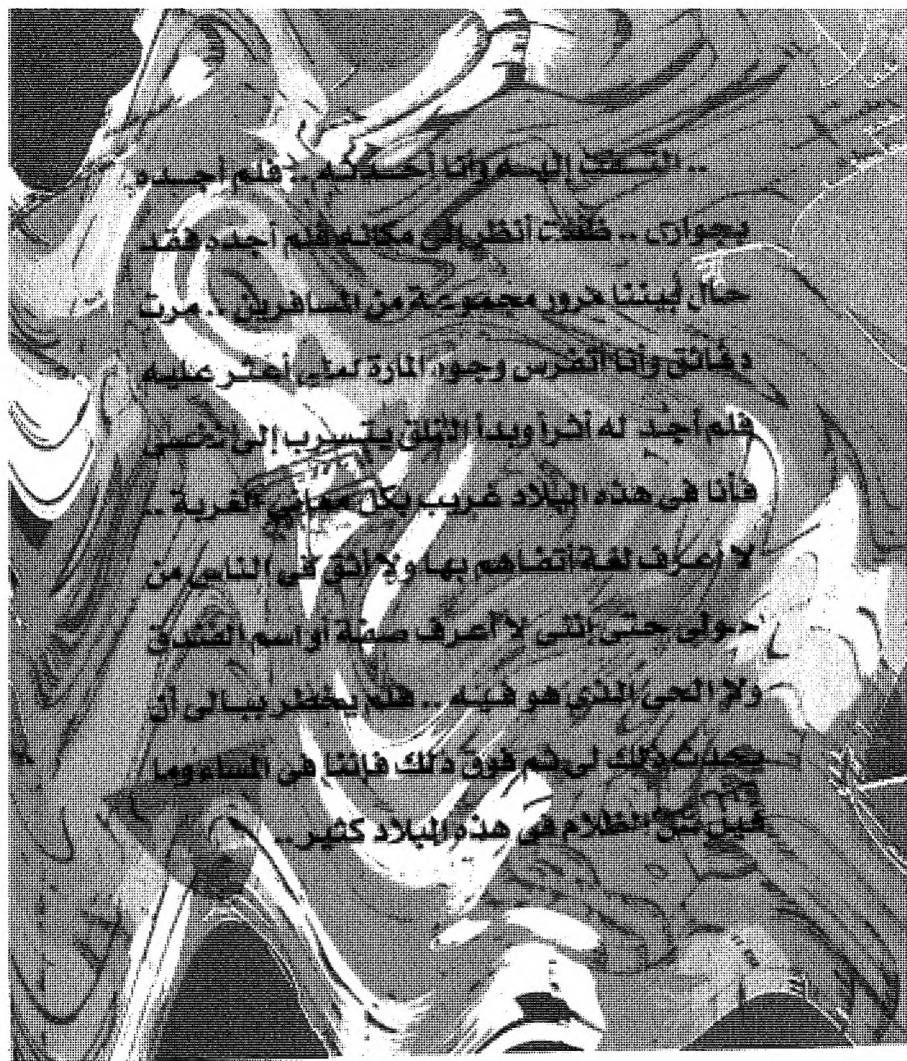 .. التفت إليه وأنا أحدثه .. فلم أجده
بجوارى .. ظللت أنظر إلى مكانه فلم أجده فقد
حال بيننا مرور مجموعة من المسافرين .. مرت
دقائق وأنا أتفرس وجوه المارة لعلى أعثر عليه
فلم أجد له أثرا وبدأ القلق يتسرب إلى نفسى
فأنا فى هذه البلاد غريب بكل معانى الغربة ..
لا أعرف لغة أتفاهم بها ولا أثق فى الناس من
حولى حتى إننى لا أعرف صفة أو اسم الفندق
ولا الحى الذي هو فيه .. فلم يخطر ببالى أن
يحدث ذلك لى ثم فوق ذلك فإننا فى المساء وما
قيل عن الظلام فى هذه البلاد كثير ..